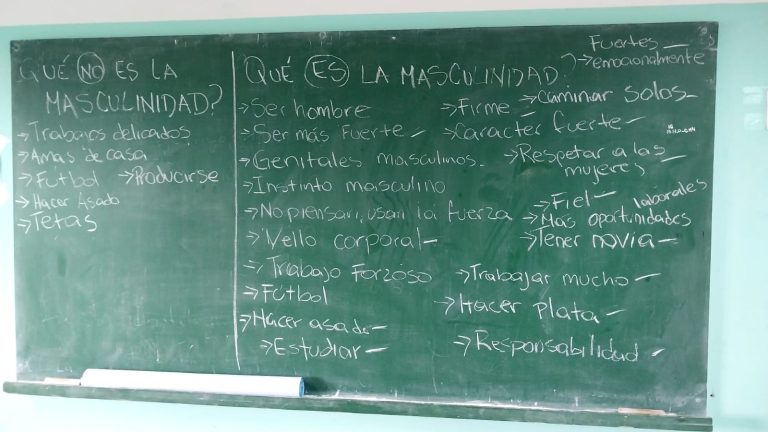 QUÉ NO ES LA
MASCULINIDAD?
→ Trabajos delicados
→ Amas de casa
→ Fútbol → Producirse
→ Hacer Asado
→ Tetas
QUÉ ES LA MASCULINIDAD?
→ Ser hombre
→ Ser más fuerte -
→ Genitales masculinos -
→ Instinto masculino
→ No piensan, usan la fuerza
→ Vello corporal -
→ Trabajo Forzoso
→ Fútbol
→ Hacer asado -
→ Estudiar -
→ Firme -
→ Caracter fuerte -
Fuertes -
→ emocionalmente
→ Caminar solos -
→ Respetar a las
mujeres -
→ Fiel -
laborales
→ Más oportunidades
→ Tener novia -
→ Trabajar mucho -
→ Hacer plata -
→ Responsabilidad -